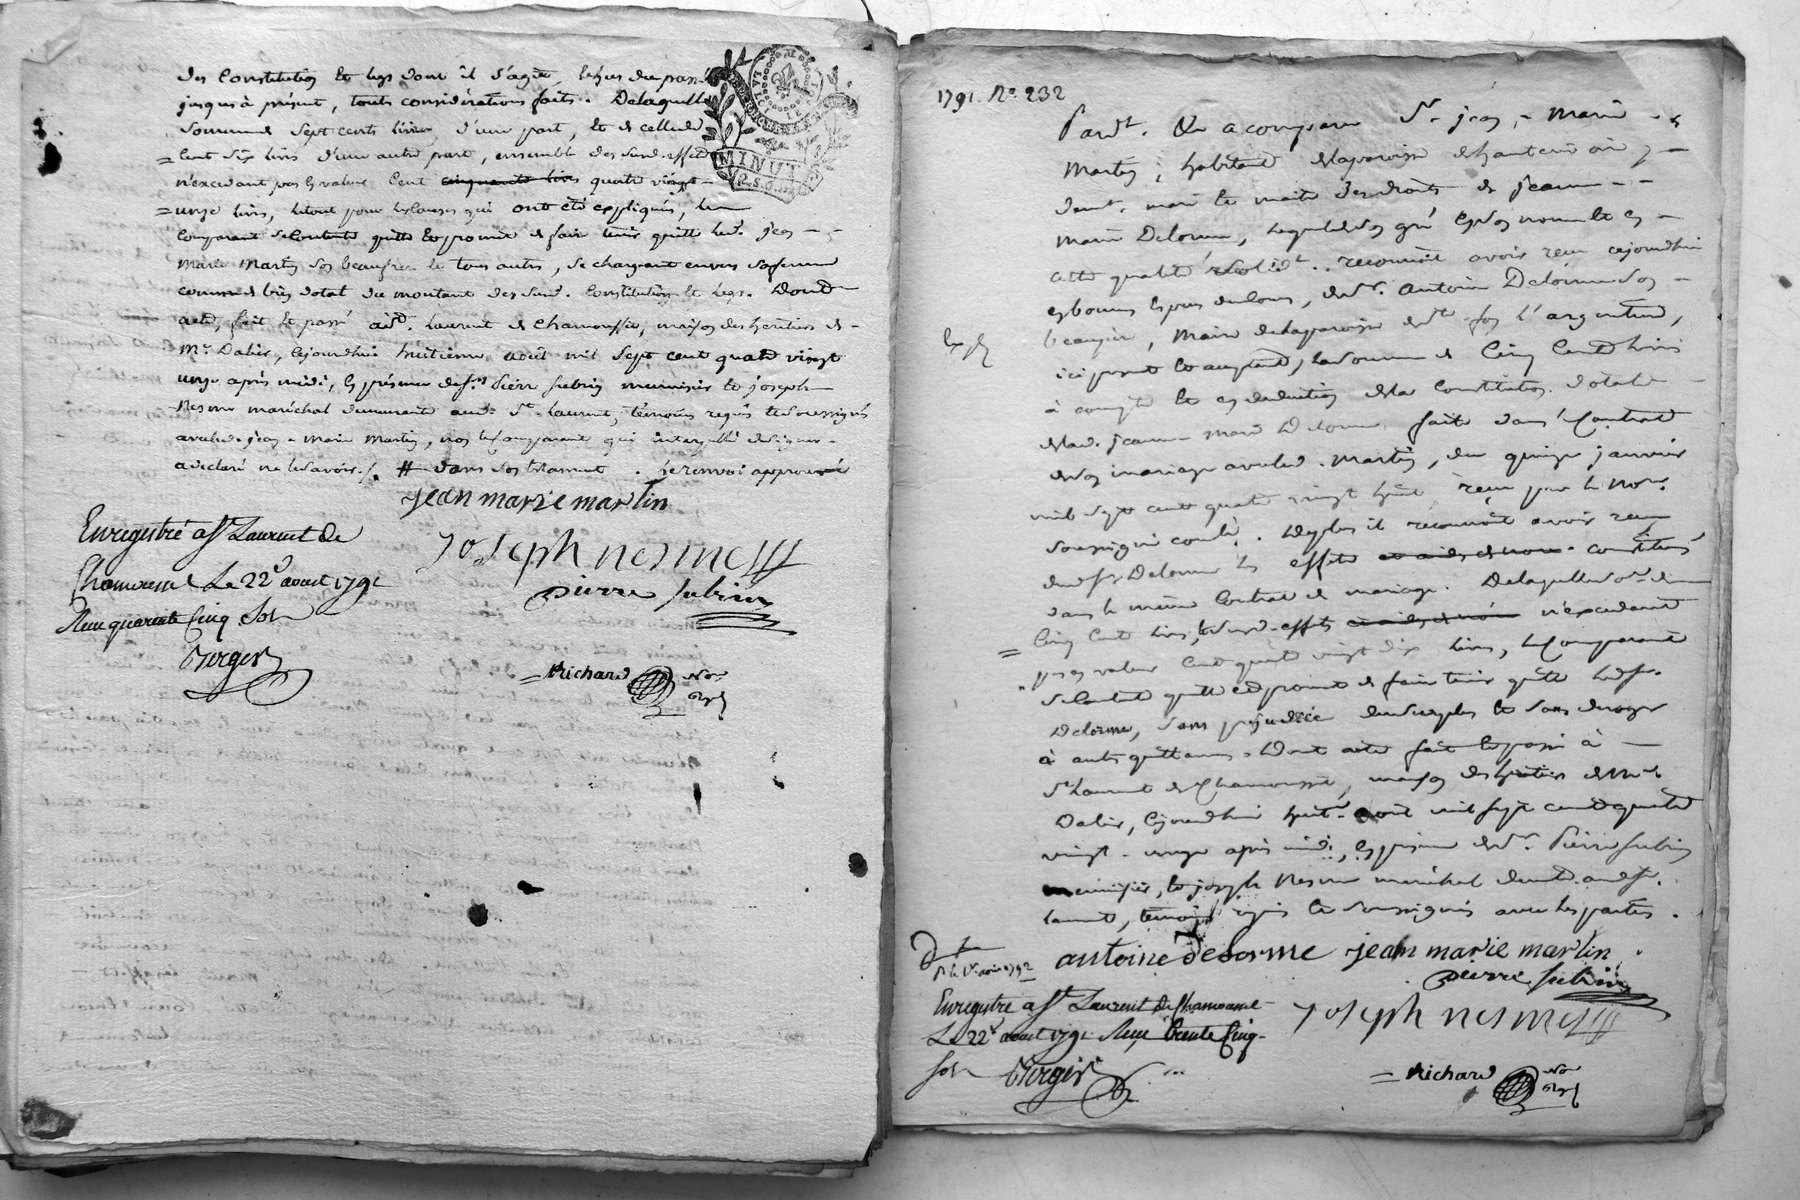 des Constitution et legs dont il s'agit,
jusqu'à présent, toute considération faite. Delaquelle
somme de sept cents livres d'une part, et de celle de
= cent dix livres d'une autre part, ensemble des susd. effets
n'excedant pas la valeur Cent cinquante livres quatre vingt -
= unze livres, le tout pour les causes qui ont été expliqués, le
comparant se contente quitte et promet de faire tenir quitte led. jean - -
Marie Martin son beaufrere et tous autres, se chargeant envers sa femme
comme bien dotal du montant des susd. Constitution et legs. Dont
acte, fait et passé aud. St. Laurent de Chamousset, maison des heritiers de -
Mr. Dalier, cejourd'hui huitieme août mil sept cent quatre vingt
unze après midi, en présence de srs. Pierre Subrin menuisier et joseph
Nesme maréchal demeurants aud. St. Laurent, témoins requis et soussignés
avec led. jean - Marie Martin, non le Comparant qui interpellé de signer -
a declaré ne le savoir. /. # dans son testament. le renvoi approuvé
jean marie martin
Enregistré a St. Laurent De
joseph nesme
Chamousset Le 22e. aoust 1791
pierre subrin
Reçu quarante Cinq Sols
Berger
= Richard Nore. Royl.
LA LOI LE
MINUTE
1791. No. 232
Pardt. Est a comparu Sr. jean - Marie -
Martin, habitant de la paroisse de hauterivoire, -
mari et maître des droits de jeanne - -
Marie Delorme, lequel de son gré es dits noms et en -
cette qualité reconnoît avoir reçu cejourd'hui
en bonnes espèces de cours, de sr. Antoine Delorme son -
beaupère, Maire de la paroisse de St. foy l'argentiere,
ici présent et acceptant, la somme de Cinq Cents livres
à compte et en deduction de la Constitution dotale
de lad. jeanne Marie Delorme faite dans le Contrat
de son mariage avec led. Martin, du quinze janvier
mil sept cent quatre vingt huit, reçu par le Nore.
soussigné controlé. De plus il reconnoit avoir reçu
dud. sr. Delorme les effets constitués
dans le même Contrat de mariage. De laquelle somme de
= Cinq Cents livres, et susd. effets n'excedant
pas en valeur Cent quatre vingt dix livres, le Comparant
se contente quitte et promet de faire tenir quitte led. sr.
Delorme, sans préjudice du surplus et sans deroger
à autres quittances. Dont acte fait et passé à -
St. Laurent de Chamousset, maison des heritiers de Mr.
Dalier, cejourd'hui huit. août mil sept cent quatre
vingt - unze après midi, en présence de sr. Pierre Subrin
menuisier, et joseph Nesme maréchal demt. aud. St.
Laurent, témoins requis et soussignés avec les parties.
antoine delorme jean marie martin
pierre subrin
Enregistré a St. Laurent De Chamousset
joseph nesme
Le 22e. aoust 1791 Reçu trente Cinq
Sols Berger
= Richard Nore. Royl.